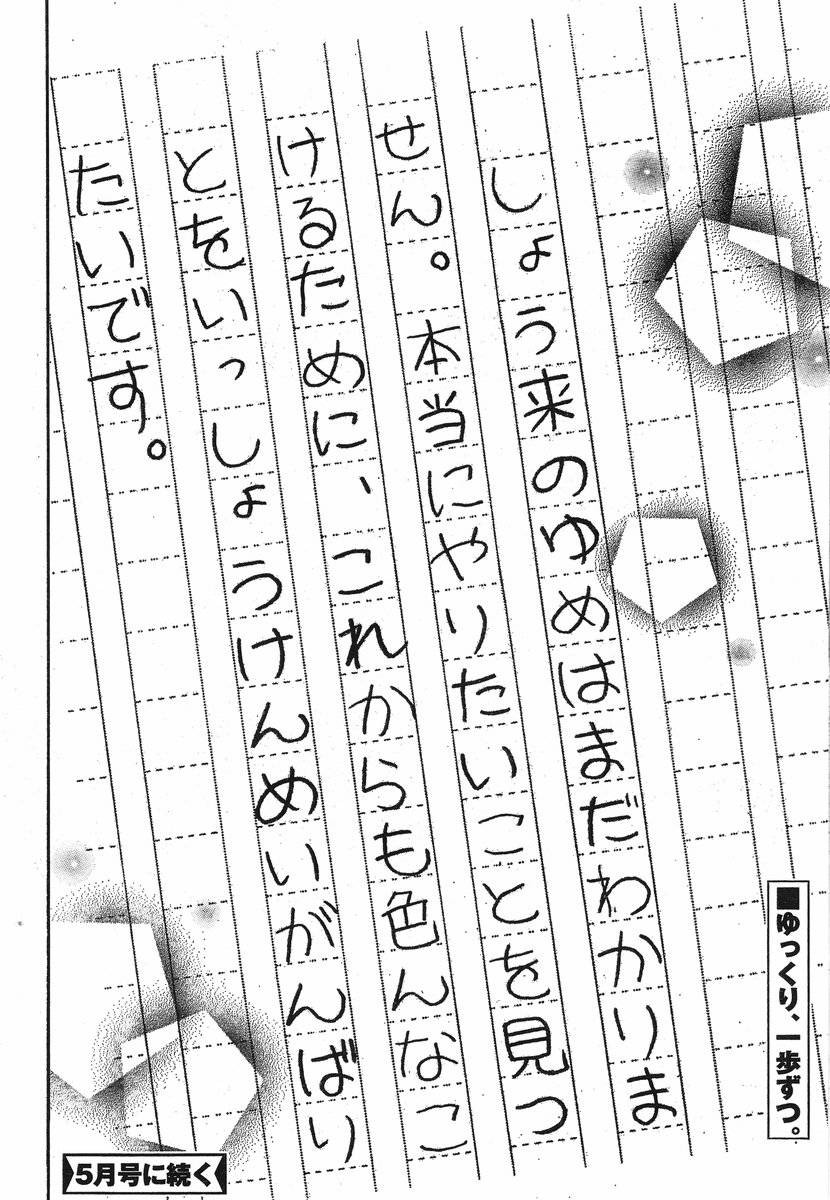 しょう来のゆめはまだわかりま
せん。本当にやりたいことを見つ
けるために、これからも色んなこ
とをいっしょうけんめいがんばり
たいです。
■ゆっくり、一歩ずつ。
5月号に続く